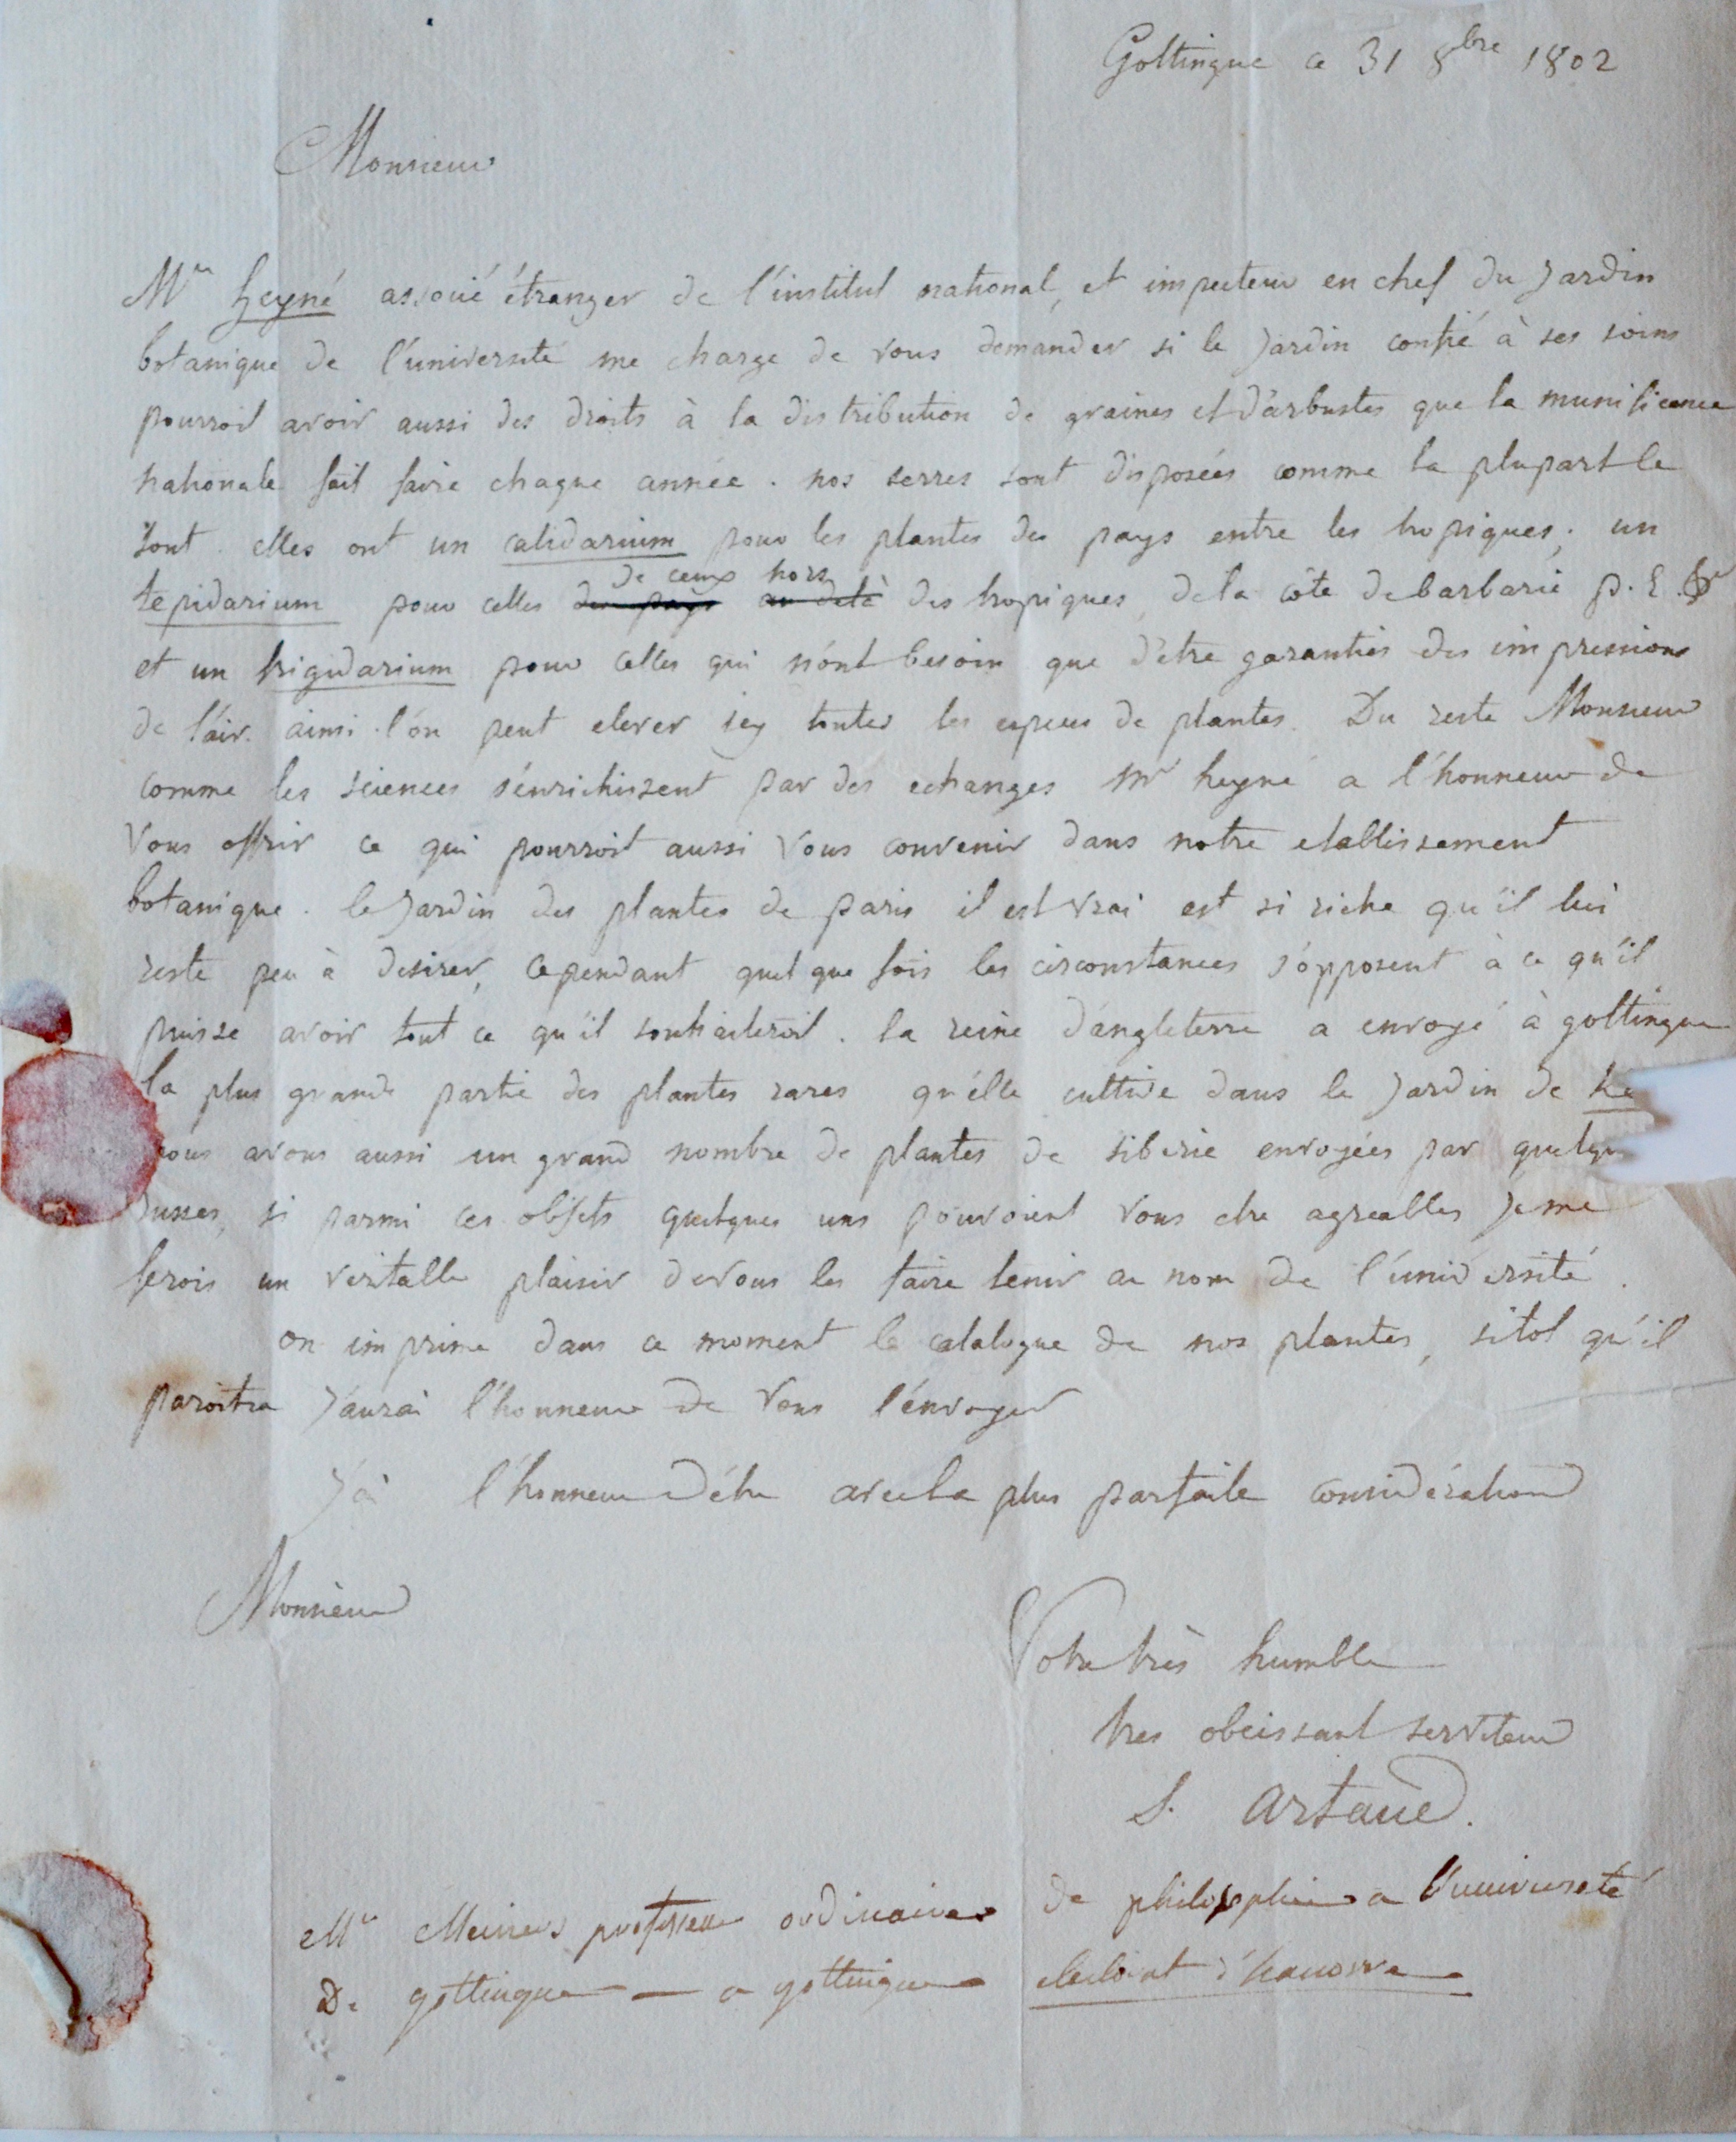 Gottingue ce 31 8bre 1802
Monsieur
Mr heyné associé étranger de l'institut national, et inspecteur en chef du jardin
botanique de l'université me charge de vous demander si le jardin confié à ses soins
pourroit avoir aussi des droits à la distribution de graines et d'arbustes que la munificence
nationale fait faire chaque année. nos serres sont disposées comme la plupart le
sont. elles ont un calidarium pour les plantes des pays entre les tropiques; un
de ceux hors
tepidarium pour celles des pays au delà des tropiques, de la côte de barbarie p. E. &c
et un frigidarium pour celles qui n'ont besoin que d'être garanties des impressions
de l'air. ainsi l'on peut elever icy toutes les especes de plantes. Du reste Monsieur
comme les sciences s'enrichissent par des echanges Mr heyné a l'honneur de
vous offrir ce qui pourroit aussi vous convenir dans notre etablissement
botanique. le jardin des plantes de paris il est vrai est si riche qu'il lui
reste peu à desirer, cependant quelque fois les circonstances s'opposent à ce qu'il
puisse avoir tout ce qu'il souhaiteroit. la reine d'angleterre a envoyé à gottingue
la plus grande partie des plantes rares qu'elle cultive dans le jardin de ke
nous avons aussi un grand nombre de plantes de siberie envoyées par quelqu
russes, si parmi ces objets quelques uns pouvoient vous etre agreables je me
ferois un veritable plaisir de vous les faire tenir au nom de l'université.
on imprime dans ce moment le catalogue de nos plantes, sitot qu'il
paroitra j'aurai l'honneur de vous l'envoyer
j'ai l'honneur d'être avec la plus parfaite considération
Monsieur
Votre très humble
tres obeissant serviteur
S. artaud.
Mr Meiners professeur ordinaire de philosophie a l'université
De gottingue — a gottingue electorat d'hanovre